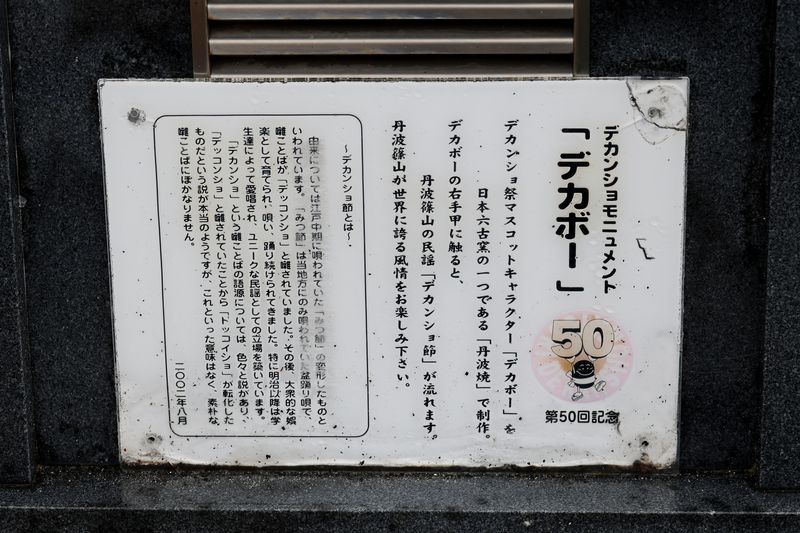 デカンショモニュメント
「デカボー」
50
第50回記念
デカンショ祭マスコットキャラクター「デカボー」を
日本六古窯の一つである「丹波焼」で制作。
デカボーの右手甲に触ると、
丹波篠山の民謡「デカンショ節」が流れます。
丹波篠山が世界に誇る風情をお楽しみ下さい。
〜デカンショ節とは〜
由来については江戸中期に唄われていた「みつ節」の変形したものと
いわれています。「みつ節」は当地方にのみ唄われていた盆踊り唄で、
囃ことばが「デッコンショ」と囃されていました。その後、大衆的な娯
楽として育てられ、唄い、踊り続けられてきました。特に明治以降は学
生達によって愛唱され、ユニークな民謡としての立場を築いています。
「デカンショ」という囃ことばの語源については、色々と説があり、
「デッコンショ」と囃されていたことから「ドッコイショ」が転化した
ものだという説が本当のようですが、これといった意味はなく、素朴な
囃ことばにほかなりません。
二〇〇二年八月